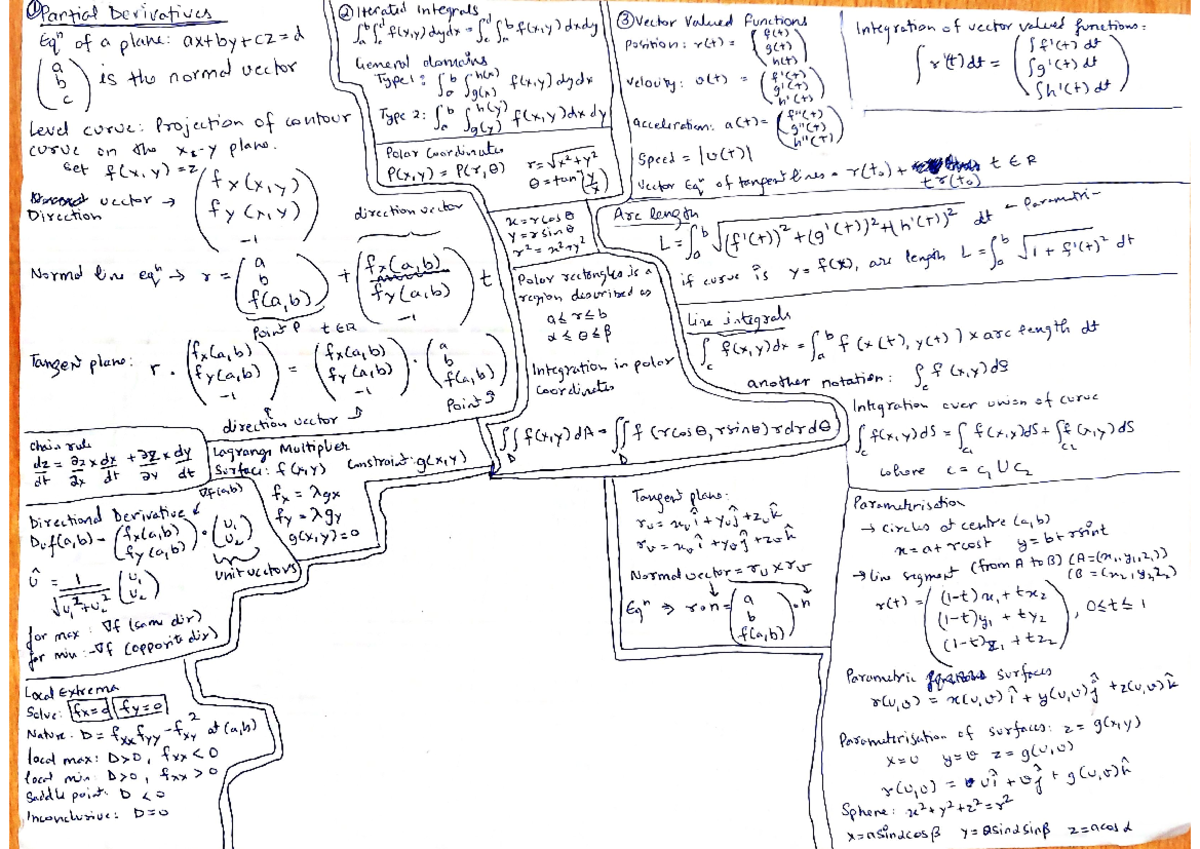 ① Partial Derivatives
Eqⁿ of a plane: ax+by+cz=d
(a b c) is the normal vector
Level curve: Projection of contour
curve on the x-y plane.
Set f(x,y) = z
Direction vector → (fx(x,y) fy(x,y) -1)
Normal line eqⁿ → r = (a b f(a,b)) + (fx(a,b) fy(a,b) -1) t
direction vector
Point P t∈R
Tangent plane: r . (fx(a,b) fy(a,b) -1) = (fx(a,b) fy(a,b) -1) . (a b f(a,b))
direction vector
Point
Chain rule
dz/dt = ∂z/∂x × dx/dt + ∂z/∂y × dy/dt
Directional Derivative
∇f(a,b)
Duf(a,b) = (fx(a,b) fy(a,b)) . (u1 u2)
unit vectors
û = 1/√(u1²+u2²) (u1 u2)
for max : ∇f (same dir)
for min : -∇f (opposite dir)
Local Extrema
Solve: fx=0 fy=0
Nature. D = fxx fyy - fxy² at (a,b)
local max: D>0, fxx<0
local min: D>0, fxx>0
Saddle point: D<0
Inconclusive: D=0
Lagrange Multiplier
Surface: f(x,y) Constraint: g(x,y)
fx = λgx
fy = λgy
g(x,y)=0
② Iterated Integrals
∫ₐᵇ∫ f(x,y)dydx = ∫∫ₐᵇ f(x,y)dxdy
General domains
Type 1: ∫ₐᵇ ∫g(x)^h(x) f(x,y)dydx
Type 2: ∫ₐᵇ ∫g(y)^h(y) f(x,y)dxdy
Polar Coordinates
P(x,y) = P(r,θ)
r=√x²+y²
θ=tan⁻¹(y/x)
x=rcosθ
y=rsinθ
r²=x²+y²
Polar rectangles is a
region described as
a≤r≤b
α≤θ≤β
Integration in polar
coordinates
∫∫D f(x,y)dA = ∫∫D f(rcosθ, rsinθ)rdrdθ
③ Vector Valued Functions
Position: r(t) = (f(t) g(t) h(t))
Velocity: v(t) = (f'(t) g'(t) h'(t))
acceleration: a(t) = (f"(t) g"(t) h"(t))
Speed = |v(t)|
Vector Eqⁿ of tangent lines = r(t₀) + t r(t₀) t∈R
Integration of vector valued functions:
∫r'(t)dt = (∫f'(t)dt ∫g'(t)dt ∫h'(t)dt)
Arc length
L=∫ₐᵇ √(f'(t))²+(g'(t))²+(h'(t))² dt ← Parametri-
if curve is y=f(x), arc length L=∫ₐᵇ √1+f'(t)² dt
Line integrals
∫c f(x,y)dx = ∫ₐᵇ f(x(t),y(t)) × arc length dt
another notation: ∫c f(x,y)ds
Integration over union of curve
∫c f(x,y)dS = ∫c1 f(x,y)dS + ∫c2 f(x,y)dS
where c = c1 ∪ c2
Tangent plane:
ru = xu î + yu ĵ + zu k̂
rv = xv î + yv ĵ + zv k̂
Normal vector = ru × rv
Eqⁿ → r.n = (a b f(a,b)) . n
Parametrisation
→ circles at centre (a,b)
x=a+rcost y=b+rsint
→ line segment (from A to B) (A=(x1,y1,z1))
(B=(x2,y2,z2)
r(t) = ((1-t)x1+tx2 (1-t)y1+ty2 (1-t)z1+tz2), 0≤t≤1
Parametric surfaces
r(u,v) = x(u,v)î + y(u,v)ĵ + z(u,v)k̂
Parameterisation of surfaces: z=g(x,y)
x=u y=v z=g(u,v)
r(u,v) = uî + vĵ + g(u,v)k̂
Sphere: x²+y²+z²=r²
x=asinαcosβ y=asinαsinβ z=acosα